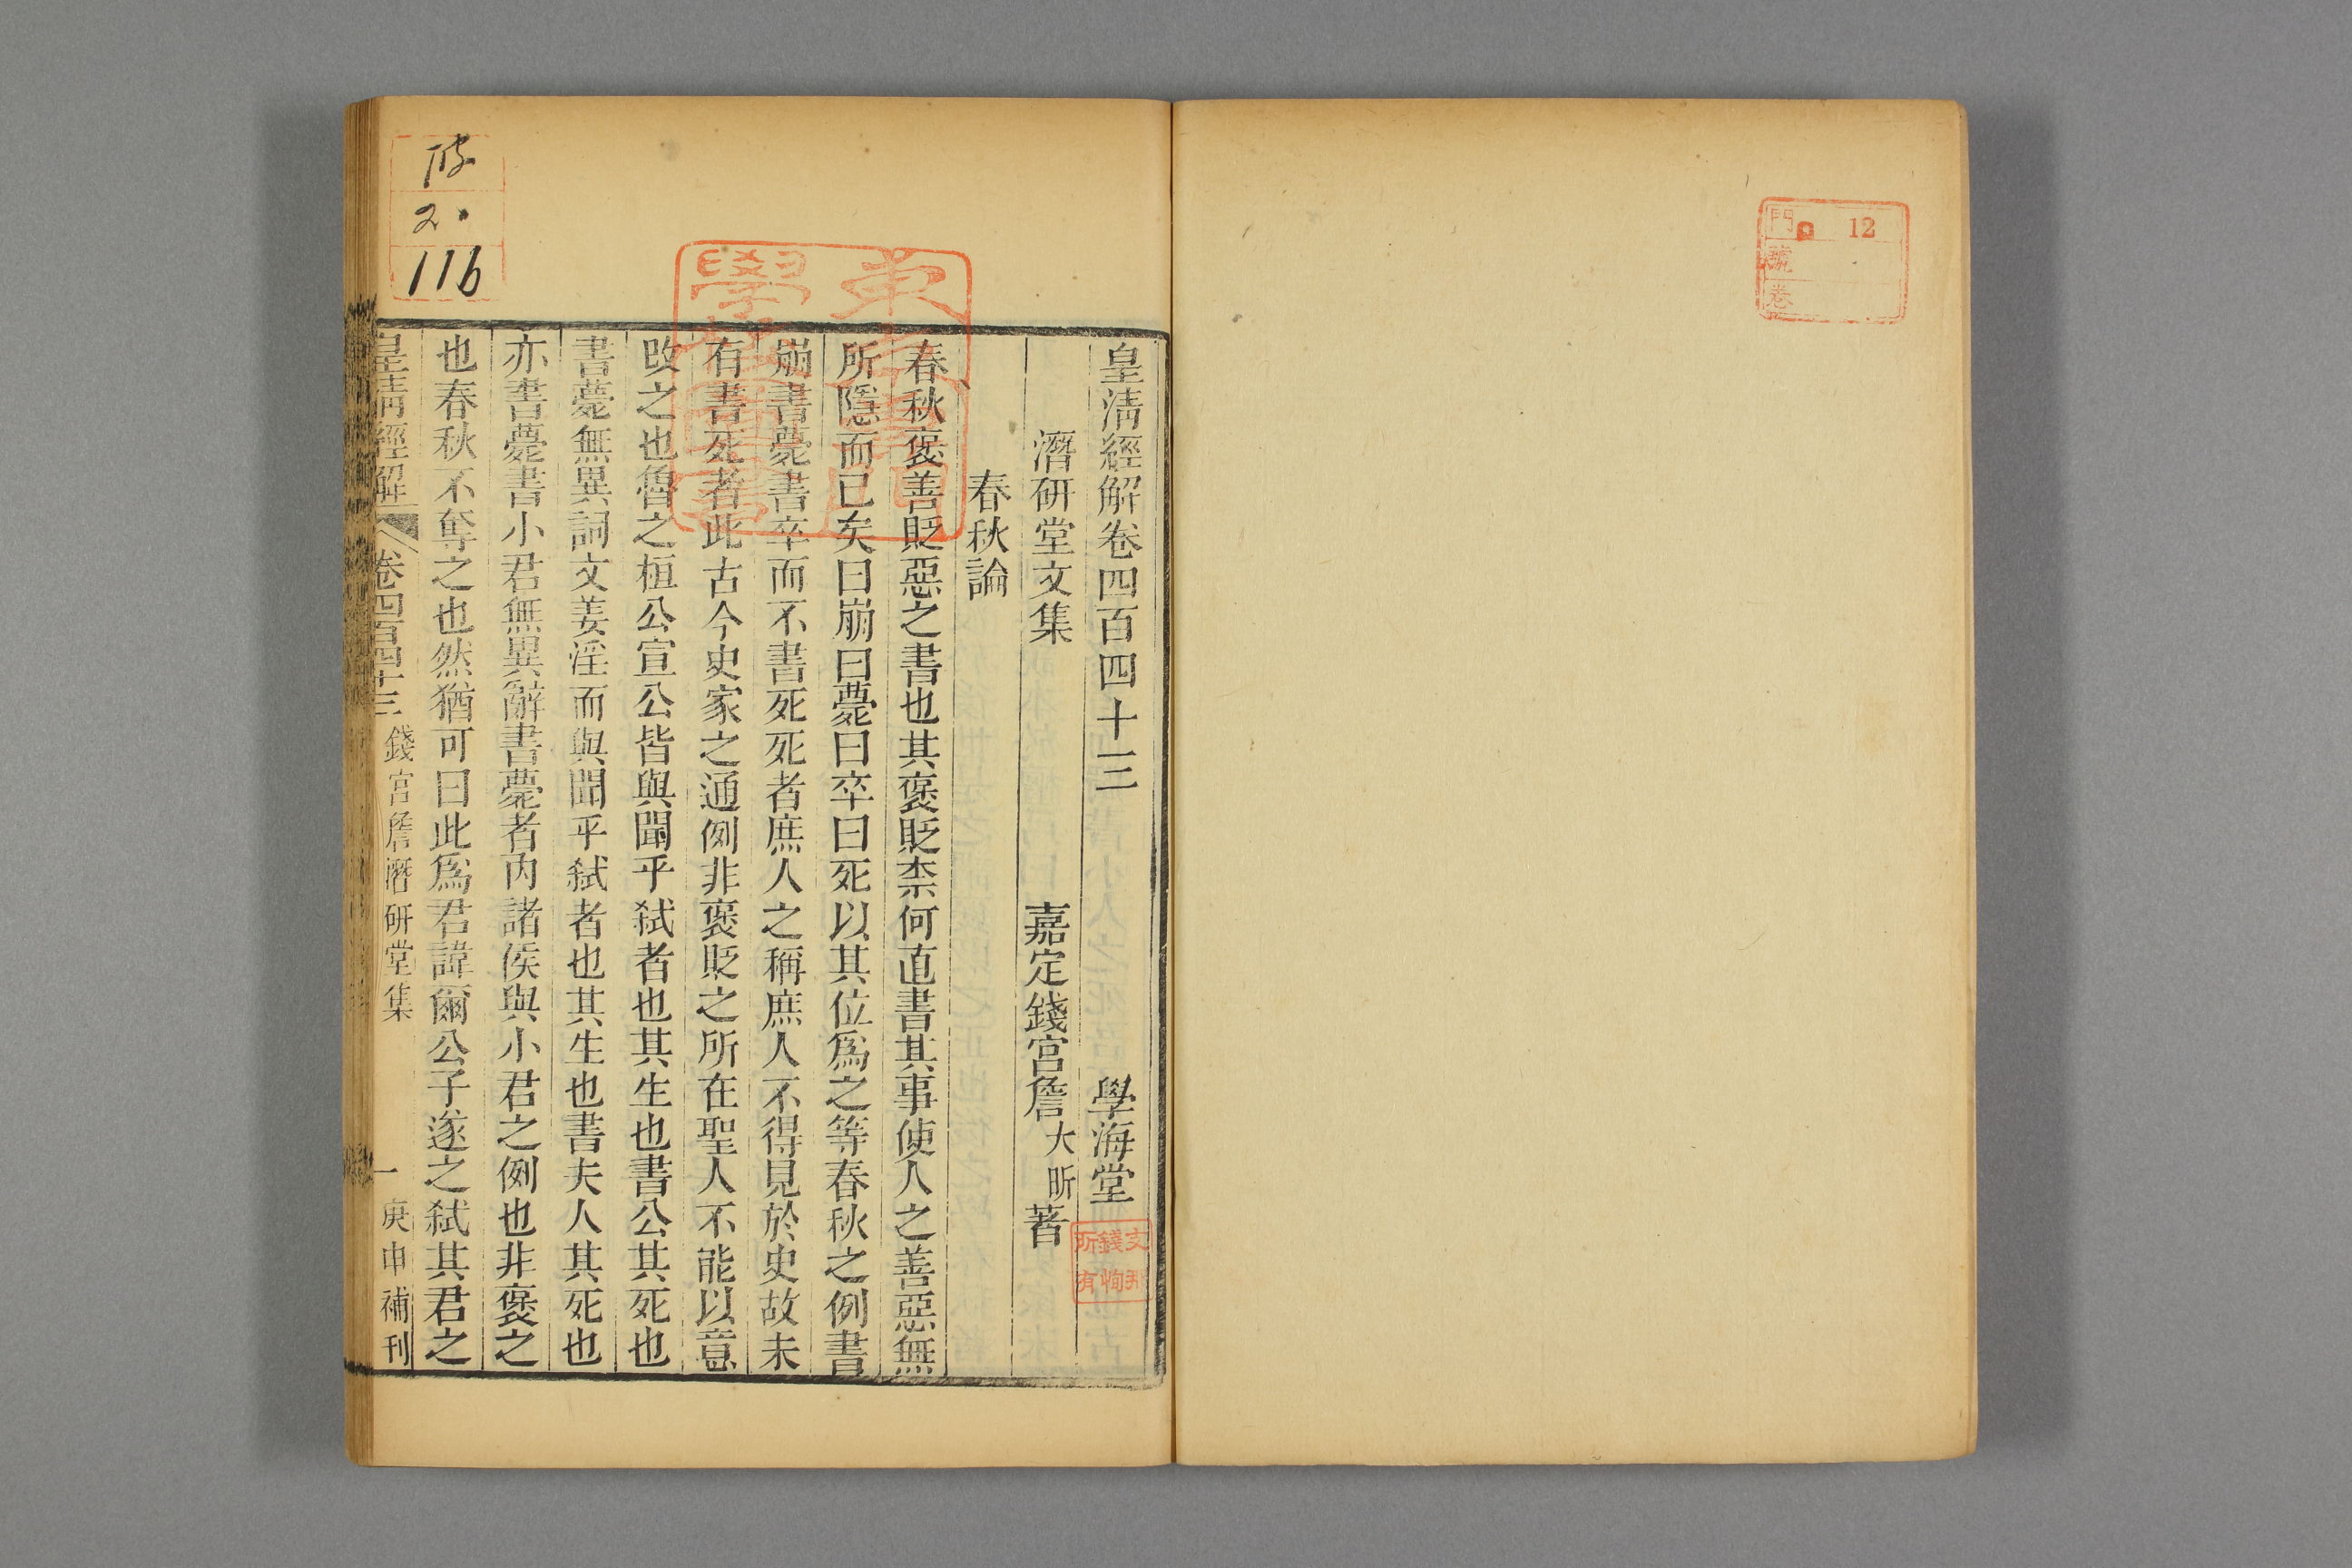 門 12
號
卷
皇清經解卷四百四十三 學海堂
潛研堂文集 嘉定錢宮詹大昕著
春秋論
春秋褒善貶惡之書也其褒貶柰何直書其事使人之善惡無
所隱而已矣曰崩曰薨曰卒曰死以其位爲之等春秋之例書
崩書薨書卒而不書死死者庶人之稱庶人不得見於史故未
有書死者此古今史家之通例非褒貶之所在聖人不能以意
改之也魯之桓公宣公皆與聞乎弑者也其生也書公其死也
書薨無異詞文姜淫而與聞乎弑者也其生也書夫人其死也
亦書薨書小君無異辭書薨者內諸侯與小君之例也非褒之
也春秋不奪之也然猶可曰此爲君諱爾公子遂之弑其君之
皇清經解 卷四百四十三 錢宮詹潛研堂集 一 庚申補刊
2
116
錢恂所有